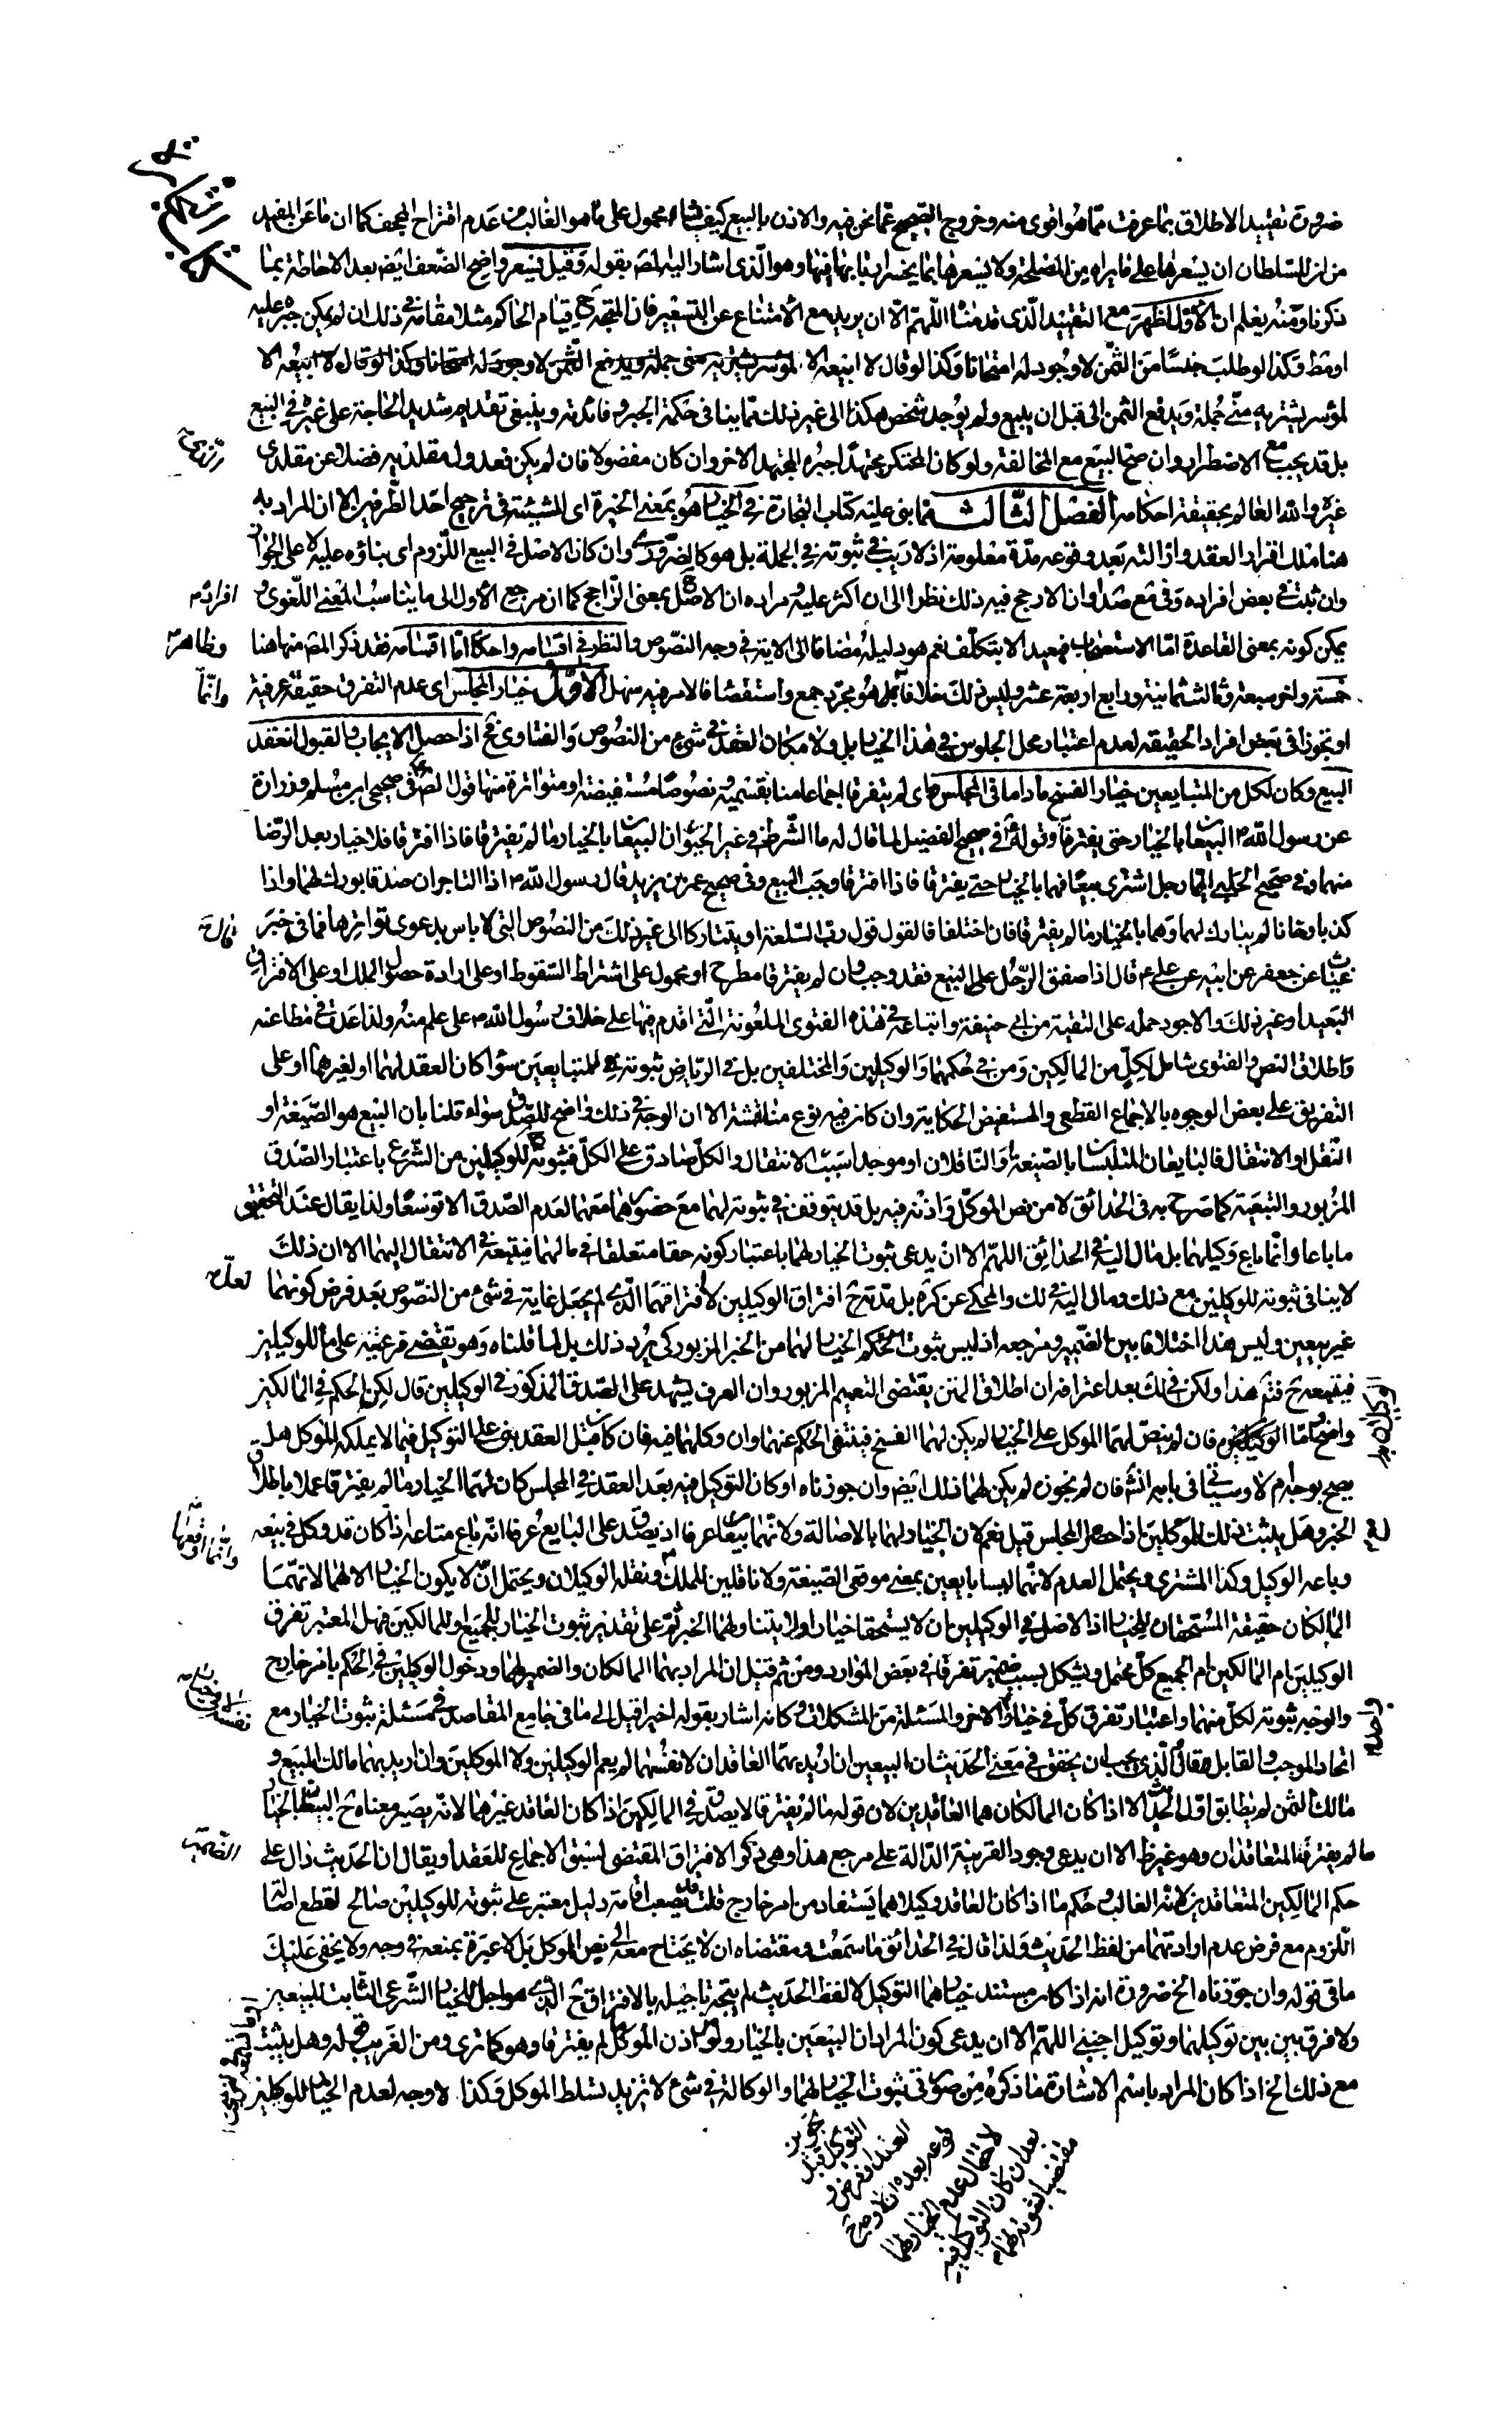 ضرورة تقييد الاطلاق بما عرفت مما هو اقوى منه وخروج الصحيح عما نحن فيه والاذن بالبيع كيف شاء محمول على ما هو الغالب من عدم اقتراح المجحف كما ان ما عن المفيد
من ان للسلطان ان يسعرها على ما يراه من المصلحة ولا يسعرها بما يخسر اربابها فيها وهو الذي اشار اليه المصـ بقوله وقيل يسعر واضح الضعف ايضـ بعد الاحاطة بما
ذكرنا ومنه يعلم ان الاول اظهر مع التقييد الذي قدمنا اللهم الا ان يريد مع الامتناع عن التسعير فان المتجه ح قيام الحاكم مثلا مقامه في ذلك ان لم يمكن جبره عليه
او مط وكذا لو طلب جنسا من الثمن لا وجود له امتحانا وكذا لو قال لا ابيعه الا
لمؤسر يشتريه مني جملة ويدفع الثمن الي قبل ان يبيع ولم يوجد شخص هكذا الى غير ذلك مما ينافي حكمة الجبر وفائدته وينبغي تقديم شديد الحاجة على غيره في البيع
بل قد يجب مع الاضطرار وان صح البيع مع المخالفة ولو كان المحتكر مجتهدا اجبره المجتهد الاخر وان كان مفضولا فان لم يكن فعدوله مقلديه فضلا عن مقلدي
غيره والله العالم بحقيقة احكامه الفصل الثالث مما بنى عليه كتاب التجارة في الخيار هو بمعنى الخيرة اي المشيئة في ترجيح احد الطرفين الا ان المراد به
هنا ملك اقرار العقد وازالته بعد وقوعه مدة معلومة اذ لا ريب في ثبوته في الجملة بل هو كالضروري وان كان الاصل في البيع اللزوم اي بناؤه عليه لا على الجواز
وان ثبت في بعض افراده وفي مع صد وان الارجح فيه ذلك نظرا الى ان اكثر افراده عليه ومراده ان الاصل بمعنى الراجح كما ان مرجع الاول الى ما يناسب المعنى اللغوي و
يمكن كونه بمعنى القاعدة اما الاستصحاب فبعيد الا بتكلف نعم هو دليله مضافا الى الاية في وجه وظاهر النصوص والنظر في اقسامه واحكامه اما اقسامه فقد ذكر المصـ منها هنا
خمسة واخر سبعة وثالث ثمانية ورابع اربعة عشر وليس ذلك خلافا بل هو مجرد جمع واستقصاء فالامر فيه سهل الاول خيار المجلس اي عدم التفرق حقيقة عرفية
او تجوزا في بعض افراد الحقيقة لعدم اعتبار محل الجلوس في هذا الخيار بل ولا مكان العقد في شيء من النصوص والفتاوى وح اذا حصل الايجاب والقبول انعقد
البيع وكان لكل من المتبايعين خيار الفسخ ما داما في المجلس اي لم يتفرقا اجماعا منا بقسميه ونصوصا مستفيضة او متواترة منها قول الصـ في صحيحي ابن مسلم وزرارة
عن رسول الله ص البيعان بالخيار حتى يفترقا وقوله في صحيح الفضيل لما قال له ما الشرط في غير الحيوان البيعان بالخيار ما لم يفترقا فاذا افترقا فلا خيار بعد الرضا
منهما وفي صحيح الحلبي ايما رجل اشترى بيعا فهما بالخيار حتى يفترقا فاذا افترقا وجب البيع وفي صحيح عمر بن يزيد قال رسول الله ص اذا التاجران صدقا بورك لهما واذا
كذبا وخانا لم يبارك لهما وهما بالخيار ما لم يفترقا فان اختلفا فالقول قول رب السلعة او يتتاركا الى غير ذلك من النصوص التي لا باس بدعوى تواترها فما في خبر
غياث عن جعفر عن ابيه عن علي ع قال اذا صفق الرجل على البيع فقد وجب وان لم يفترقا مطرح او محمول على اشتراط السقوط او على ارادة حصول الملك او على الافتراق
البعيد او غير ذلك والاجود حمله على التقية من ابي حنيفة واتباعه في هذه الفتوى الملعونة التي اقدم فيها على خلاف رسول الله ص على علم منه ولذا عدت في مطاعنه
واطلاق النص والفتوى شامل لكل من المالكين ومن في حكمهما والوكيلين والمختلفين بل في الرياض ثبوته للمتبايعين سواء كان العقد لهما او لغيرهما او على
التفريق على بعض الوجوه بالاجماع القطعي والمستفيض الحكاية وان كان فيه نوع مناقشة الا ان الوجه في ذلك واضح للصدق سواء قلنا بان البيع هو الصيغة او
النقل او الانتقال فالبايعان المتلبسان بالصيغة والناقلان او موجدا سبب الانتقال والكل صادق على الكل فثبوته للوكيلين من الشرع باعتبار الصدق
المزبور والتبعية كما صرح به في الحدائق لا من نص الموكل واذنه فيه بل قد يتوقف في ثبوته لهما مع حضورهما معهما لعدم الصدق الا توسعا ولذا يقال عند التحقيق
ما باعا وانما باع وكيلهما بل مال اليه في الحدائق اللهم الا ان يدعى ثبوت الخيار لهما باعتبار كونه حقا متعلقا في مالهما فيتبعه في الانتقال اليهما الا ان ذلك
لا ينافي ثبوته للوكيلين مع ذلك ومال اليه في لك والمحكي عن كره بل قد ترجح افتراق الوكيلين لافتراقهما الذي لم يجعل غاية في شيء من النصوص بعد فرض كونهما
غير بيعين وليس هذا اختلافا بين الضمير ومرجعه اذ ليس ثبوت الحكم الخيار لهما من الخبر المزبور كي يرد ذلك بل لما قلناه وهو يقتضي فرعيته على ما للوكيلين
فيتبعه ح فتم هذا ولكن في لك بعد اعترافه ان اطلاق المتن يقتضي التعميم المزبور وان العرف يشهد على الصدق المذكور في الوكيلين قال لكن الحكم في المالكين
واضح واما الوكيلان فان لم ينص لهما الموكل على الخيار لم يكن لهما الفسخ فينتفي الحكم عنهما وان وكلهما فيه فان كان قبل العقد بني على التوكيل فيما لا يملكه الموكل هل
يصح بوجه ام لا وسياتي في بابه انش فان لم نجوزه لم يكن لهما ذلك ايضـ وان جوزناه او كان التوكيل فيه بعد العقد في المجلس كان لهما الخيار ما لم يفترقا عملا باطلاق
الخبر وهل يثبت ذلك للموكلين اذا حضرا المجلس قيل نعم لان الخيار لهما بالاصالة ولانهما بيعان عرفا اذ يصدق على البايع عرفا انه باع متاعه اذا كان قد وكل في بيعه
وباعه الوكيل وكذا المشتري ويحتمل العدم لانهما ليسا بايعين بمعنى موقعي الصيغة ولا ناقلين للملك وانما اوقعها ونقله الوكيلان ويحتمل ان لا يكون الخيار الا لهما لانهما
المالكان حقيقة المستحقان للخيار اذ الاصل في الوكيلين ان لا يستحقا خيارا ولا يتناولهما الخبر ثم على تقدير ثبوت الخيار للجميع او للمالكين فهل المعتبر تفرق
الوكيلين ام المالكين ام الجميع كل محتمل ويشكل بسبب ضمير يتفرقا في بعض الموارد ومن ثم قيل ان المراد بهما المالكان والضمير لهما ودخول الوكيلين في الحكم بامر خارج
والوجه ثبوته لكل منهما واعتبار تفرق كل في خيار نفسه لا في خيار الاخر والمسئلة من المشكلات وكانه اشار بقوله اخيرا قيل الى ما في جامع المقاصد في مسئلة ثبوت الخيار مع
اتحاد الموجب والقابل فقال الذي يجب ان يحقق في معنى الحديث ان البيعين ان اريد بهما العاقدان لانفسهما لم يعم الوكيلين ولا الموكلين وان اريد بهما مالك المبيع و
مالك الثمن لم يطابق اول الحديث الا اذا كان المالكان هما العاقدين لان قوله ما لم يفترقا لا يصدق في المالكين اذا كان العاقد غيرهما لانه يصير معناه ح البيعان بالخيار
ما لم يفترق المتعاقدان وهو غير ظ الا ان يدعى وجود القرينة الدالة على مرجع هذا الضمير وهي ذكر الافتراق المقتضي لسبق الاجماع للعقد او يقال ان الحديث دال على
حكم المالكين المتعاقدين لانه الغالب وحكم ما اذا كان العاقد وكيلا هما يستفاد من امر خارج قلت قد يصعب اقامة دليل معتبر على ثبوته للوكيلين صالح لقطع اصالة
اللزوم مع فرض عدم ارادتهما من لفظ الحديث ولذا قال في الحدائق ما سمعت ومقتضاه ان لا يحتاج معه الى نص الموكل بل لا عبرة بمنعه في وجه ولا يخفى عليك
ما في قوله وان جوزناه الخ ضرورة انه اذا كان مستند خيارهما التوكيل لا لفظ الحديث لم يتجه تاجيله بالافتراق ح الذي هو اجل للخيار الشرعي الثابت للبيعين
ولا فرق بين بين توكيلهما وتوكيل اجنبي اللهم الا ان يدعى كون المراد ان البيعين بالخيار ولو اذن الموكل لم يفترقا وهو كما ترى ومن الغريب قوله وهل يثبت
مع ذلك الخ اذا كان المراد باسم الاشارة ما ذكره من صورتي ثبوت الخيار لهما والوكالة في شيء لا تزيد تسلط الموكل وكذا لا وجه لعدم الخيار للوكلين
جوز
التوكيل قبل
العقد او فرض و
قوعه بعده اذ لا وجه
لاحتمال عدم الخيار لهما
بعد ان كان التوكيل فيه
مقتضيا لثبوته لهما